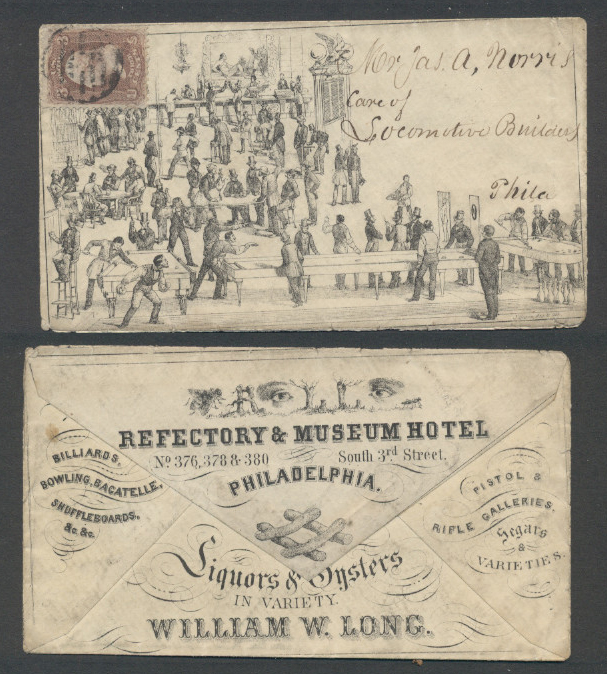 Mr Jas. A, Norris
Care of
Locomotive Builders
Phila
REFECTORY & MUSEUM HOTEL
No 376, 378 & 380 South 3rd Street.
PHILADELPHIA.
BILLIARDS,
BOWLING, BAGATELLE,
SHUFFLEBOARDS,
&c. &c.
PISTOL &
RIFLE GALLERIES.
Segars
&
VARIETIES.
Liquors & Oysters
IN VARIETY.
WILLIAM W. LONG.